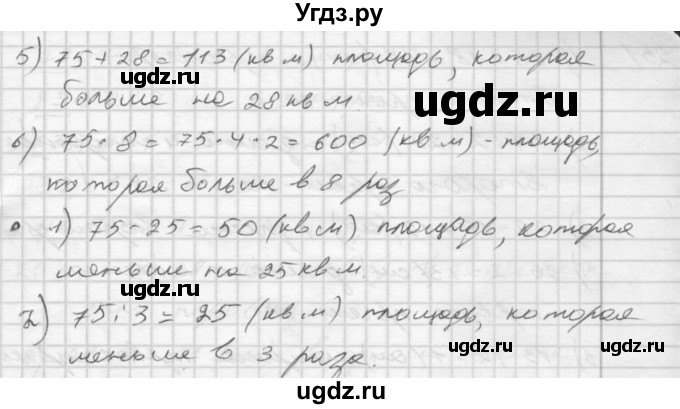 Угдз.ру
5) 75 + 28 = 113 (кв м) площадь, которая
больше на 28 кв м
6) 75 · 8 = 75 · 4 · 2 = 600 (кв м) - площадь,
которая больше в 8 раз
1) 75 - 25 = 50 (кв м) площадь, которая
меньше на 25 кв м.
2) 75 : 3 = 25 (кв м) площадь, которая
меньше в 3 раза.
ugdz.ru
ugdz.ru
ugdz.ru
ugdz.ru
ugdz.ru
ugdz.ru
ugdz.ru
ugdz.ru